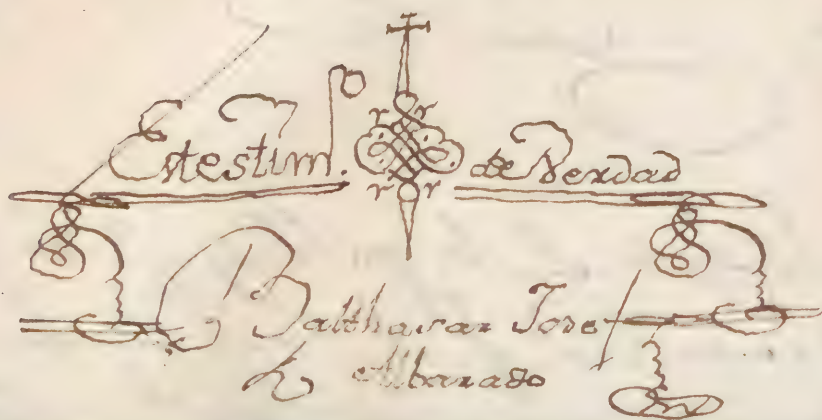 En testimo. de Verdad
Balthasar Josef
de Albarado